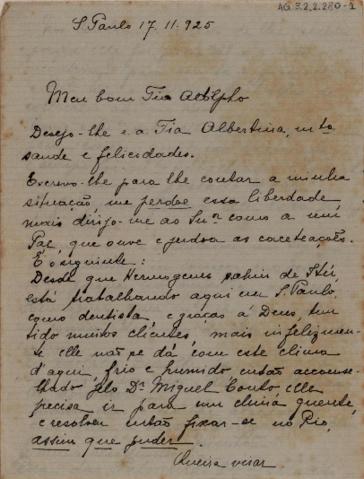 AG 3.2.2.280-1
S. Paulo 17.11.925
Meu bom Tio Adolpho
Desejo-lhe e a Tia Albertina, mta
saude e felicidades.
Escrevo-lhe para lhe contar a minha
situação, me perdoe essa liberdade,
mais dirijo-me ao Snr como a um
Pae, que ouve e perdoa as
É o siguinte:
Desde que Hermogenes sahiu de
está trabalhando aqui em S. Paulo,
como dentista, e graças a Deus, tem
tido muitos clientes, mais infelizmen-
te elle não se dá com este clima
d'aqui, frio e humido então aconse-
lhado pelo Dr Miguel Couto elle
precisa ir para um clima quente,
e resolveu então fixar-se no Rio,
assim que puder.
Queira virar